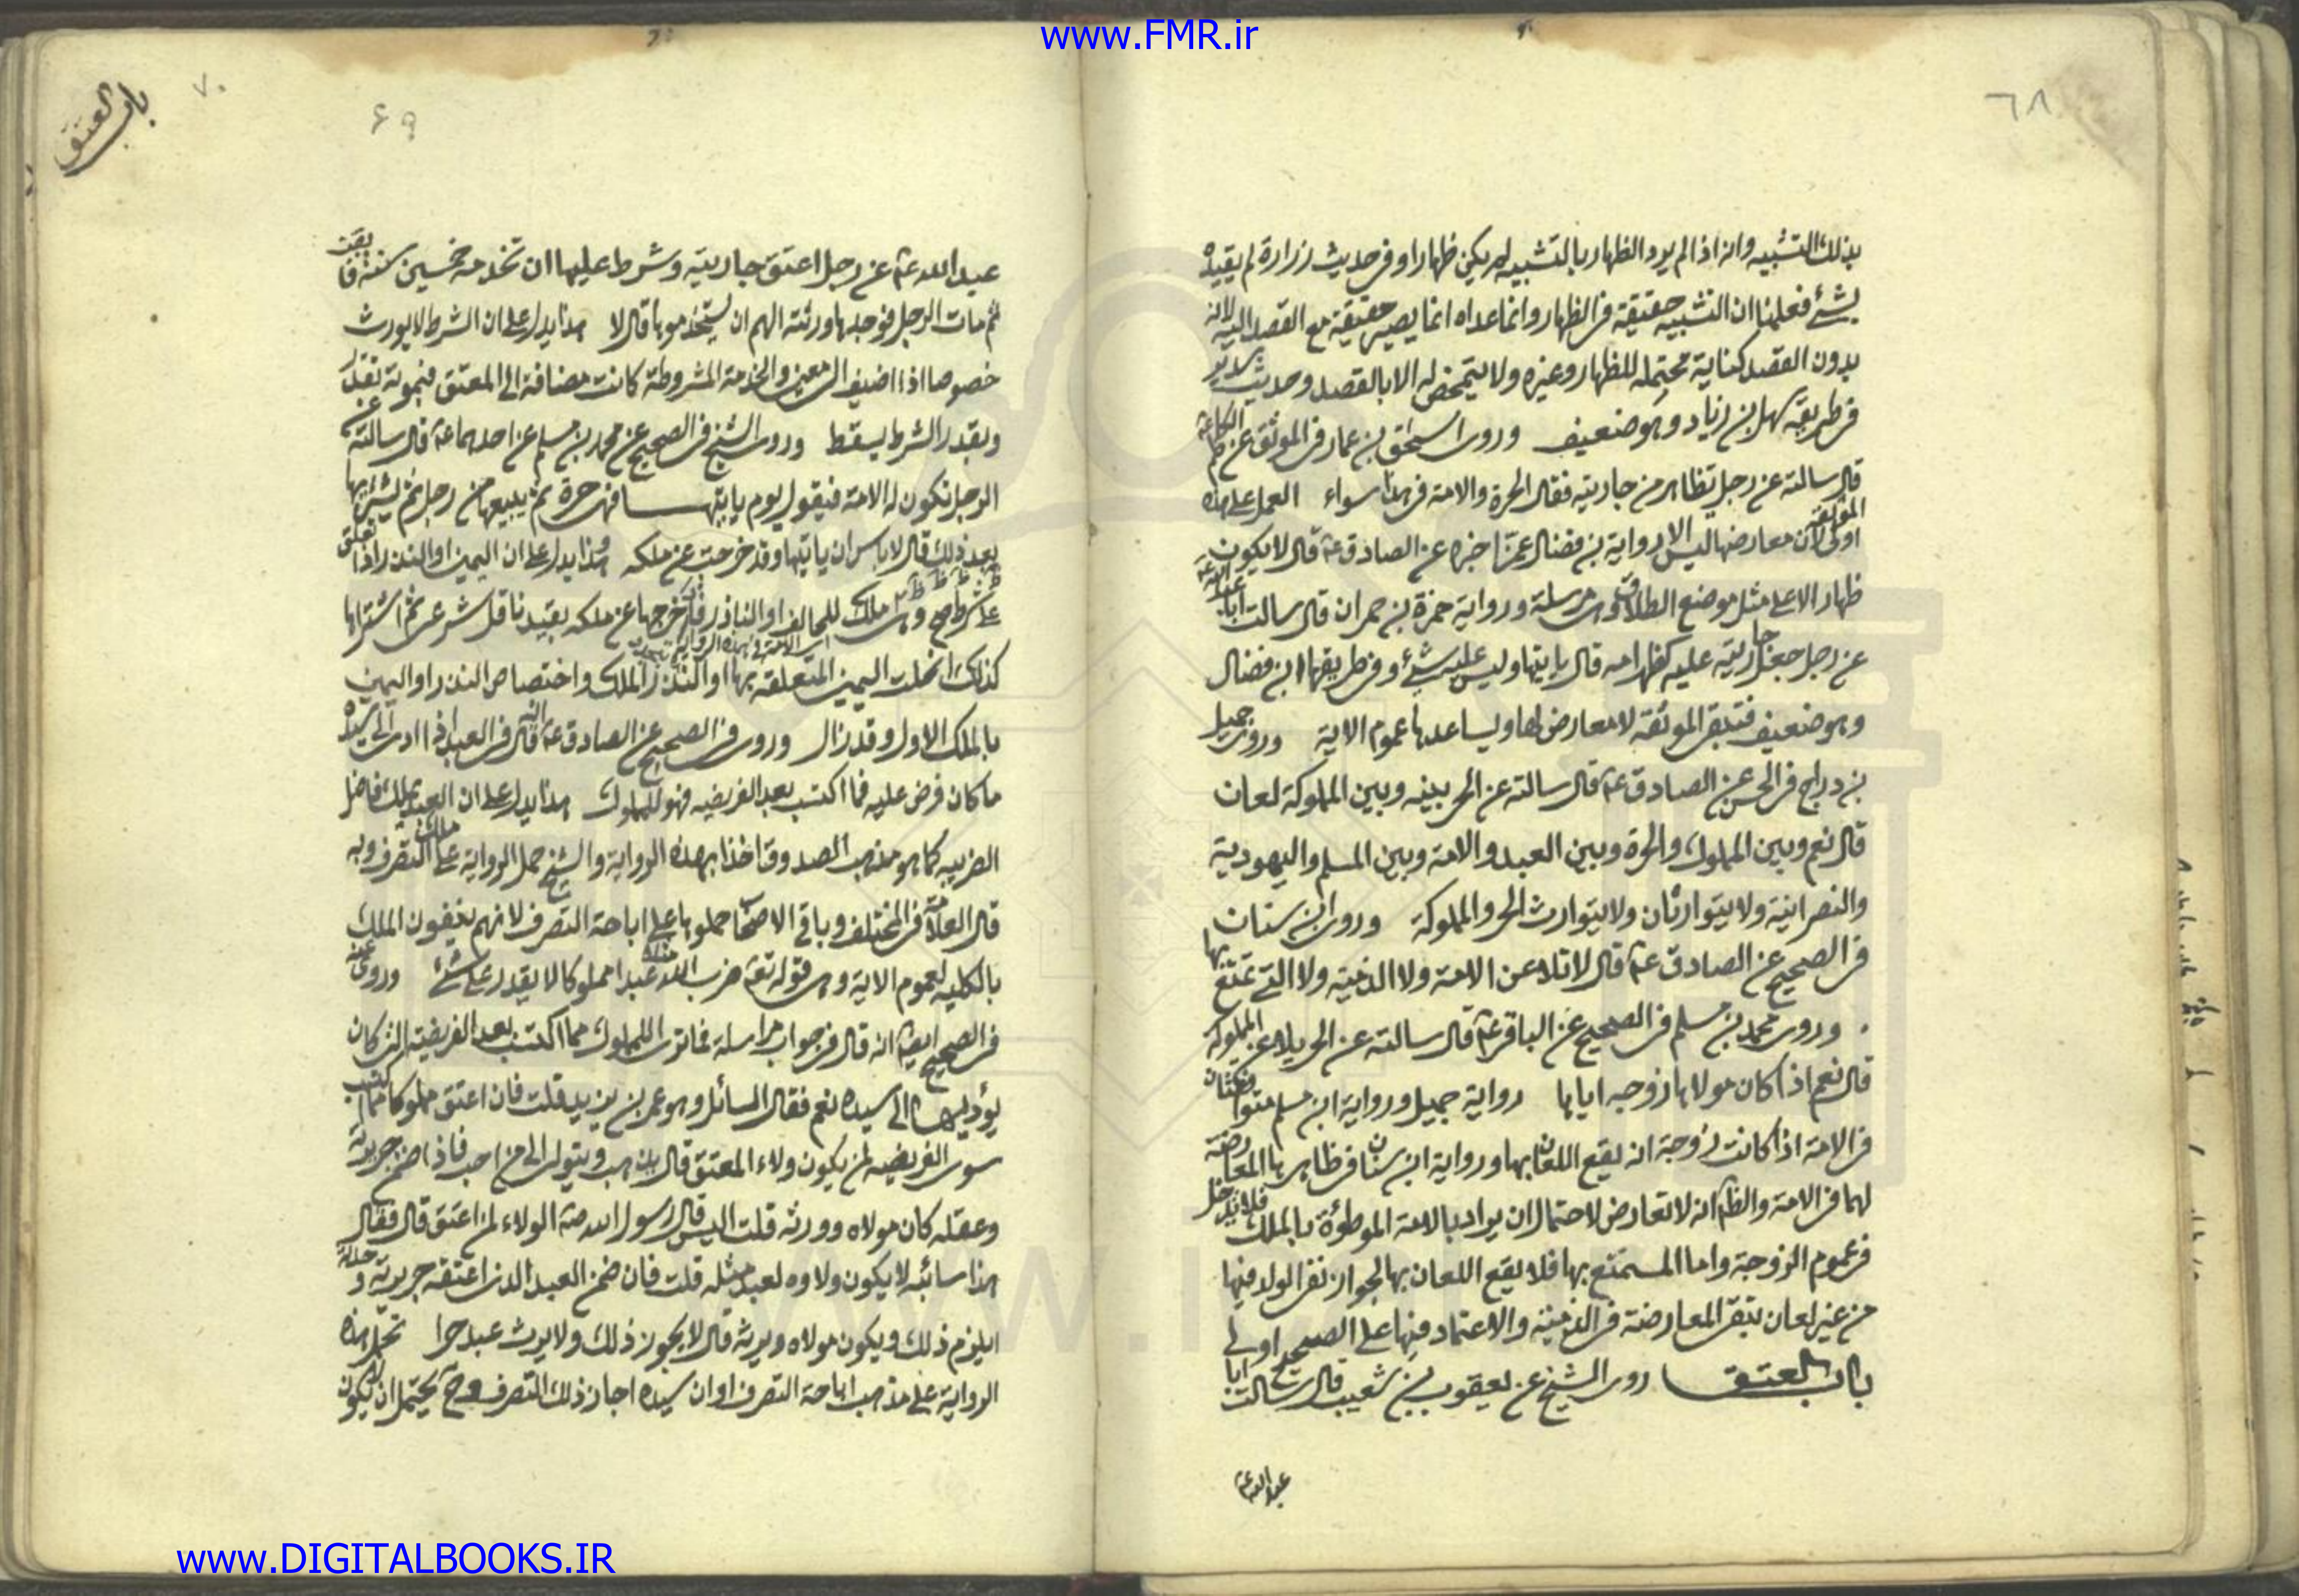 www.FMR.ir
٦٨
بذلك التشبيه وانه اذا لم يرد الظهار بالتشبيه لم يكن ظهارا وفى حديث زرارة لم يقيده
بشئ فعلمنا ان التشبيه حقيقة فى الظهار وانما عداه انما يصير حقيقة مع القصد اليه لانه
بدون القصد كناية محتمله للظهار وغيره ولا يتمحض له الا بالقصد وحديث سدير
فى طريقه سهل بن زياد وهو ضعيف وروى اسحق بن عمار فى الموثق عن الكاظم ع
قال سالته عن رجل تظاهر من جاريته فقال الحرة والامة فى هذا سواء العمل على هذه
الموثقة اولى لان معارضها ليس الا رواية بن فضال عمن اخبره عن الصادق ع قال لا يكون
ظهار الا على مثل موضع الطلاق وهى مرسلة ورواية حمزة بن حمران قال سالت ابا عبد الله ع
عن رجل جعل جاريته عليه كظهر امه قال ياتيها وليس عليه شئ وفى طريقها ابن فضال
وهو ضعيف فتبقى الموثقة لا معارض لها ويساعدها عموم الاية وروى جميل
بن دراج فى الحسن عن الصادق ع قال سالته عن الحر بينه وبين المملوكة لعان
قال نعم وبين المملوك والحرة وبين العبد والامة وبين المسلم واليهودية
والنصرانية ولا يتوارثان ولا يتوارث الحر والمملوكة وروى ابن سنان
فى الصحيح عن الصادق ع قال لا تلاعن الامة ولا الذمية ولا التى تمتع بها
وروى محمد بن مسلم فى الصحيح عن الباقر ع قال سالته عن الحر يلاعن المملوكة
قال نعم اذا كان مولاها زوجه اياها رواية جميل ورواية ابن مسلم متوافقتان
فى الامة اذا كانت زوجة انه يقع اللعان بها ورواية ابن سنان فى ظاهرها المعارضة
لهما فى الامة والظ انه لا تعارض لاحتمال ان يراد بالامة الموطوئة بالملك فلا يدخل
فى عموم الزوجة واما المستمتع بها فلا يقع اللعان بها لجواز نفى الولد فيها
من غير لعان بتبقى المعارضة فى الذمية والاعتماد فيها على الصحيح اولى
باب العتق روى الشيخ عن يعقوب بن شعيب قال سالت ابا
عبد الله ع
باب العتق
٧٠
٦٩
عبد الله ع عن رجل اعتق جاريته وشرط عليها ان تخدمه خمسين سنة فابقت
ثم مات الرجل فوجدها ورثته الهم ان يستخدموها قال لا هذا يدل على ان الشرط لا يورث
خصوصا اذا اضيف الى معين والخدمة المشروطة كانت مضافة الى المعتق فبموته تعذر
وبتعذر الشرط يسقط وروى الشيخ فى الصحيح عن محمد بن مسلم عن احدهما ع قال سالته عن
الرجل تكون له الامة فيقول يوم ياتيها فهى حرة ثم يبيعها من رجل ثم يشتريها
بعد ذلك قال لا باس ان ياتيها وقد خرجت عن ملكه وهذا يدل على ان اليمين او النذر اذا تعلق
على شرط وهى ملك للحالف او الناذر فاخرجها عن ملكه بعقد ناقل شرعى ثم اشتراها
كذلك انحلت اليمين المتعلقه بها او النذر الملك واختصاص النذر او اليمين
بالملك الاول وقد زال وروى فى الصحيح عن الصادق ع انه قال فى العبد اذا ادى الى سيده
ما كان فرض عليه فما اكتسب بعد الفريضه فهو للمملوك هذا يدل على ان العبد يملك فاضل
الضريبه كما هو مذهب الصدوق اخذا بهذه الرواية والشيخ حمل الرواية على ملك التصرف وبه
قال العلامة فى المختلف وباقى الاصحاب حملوها على اباحة التصرف لانهم ينفون الملك
بالكليه لعموم الاية وهى قوله تع ضرب الله مثلا عبدا مملوكا لا يقدر على شئ وروى عنه
فى الصحيح ايضا انه قال فى جواب من اسله فما ترى للمملوك مما اكتسب بعد الفريضة التى كان
يؤديها الى سيده نعم فقال السائل وهو عمر بن يزيد قلت فان اعتق مملوكا مما اكتسب
سوى الفريضه لمن يكون ولاء المعتق قال يذهب ويتولى الى من احب فاذا ضمن جريرته
وعقله كان مولاه وورثه قلت اليس قال رسول الله ص الولاء لمن اعتق قال فقال
هذا سائبه لا يكون ولاوه لعبد مثله قلت فان ضمن العبد الذى اعتقه جريرته و
ايلزم ذلك ويكون مولاه ويرثه قال لا يجوز ذلك ولا يرث عبد حرا تحمل هذه
الرواية على مذهب اباحة التصرف او ان سيده اجاز ذلك التصرف وح يحتمل ان يكون
www.DIGITALBOOKS.IR